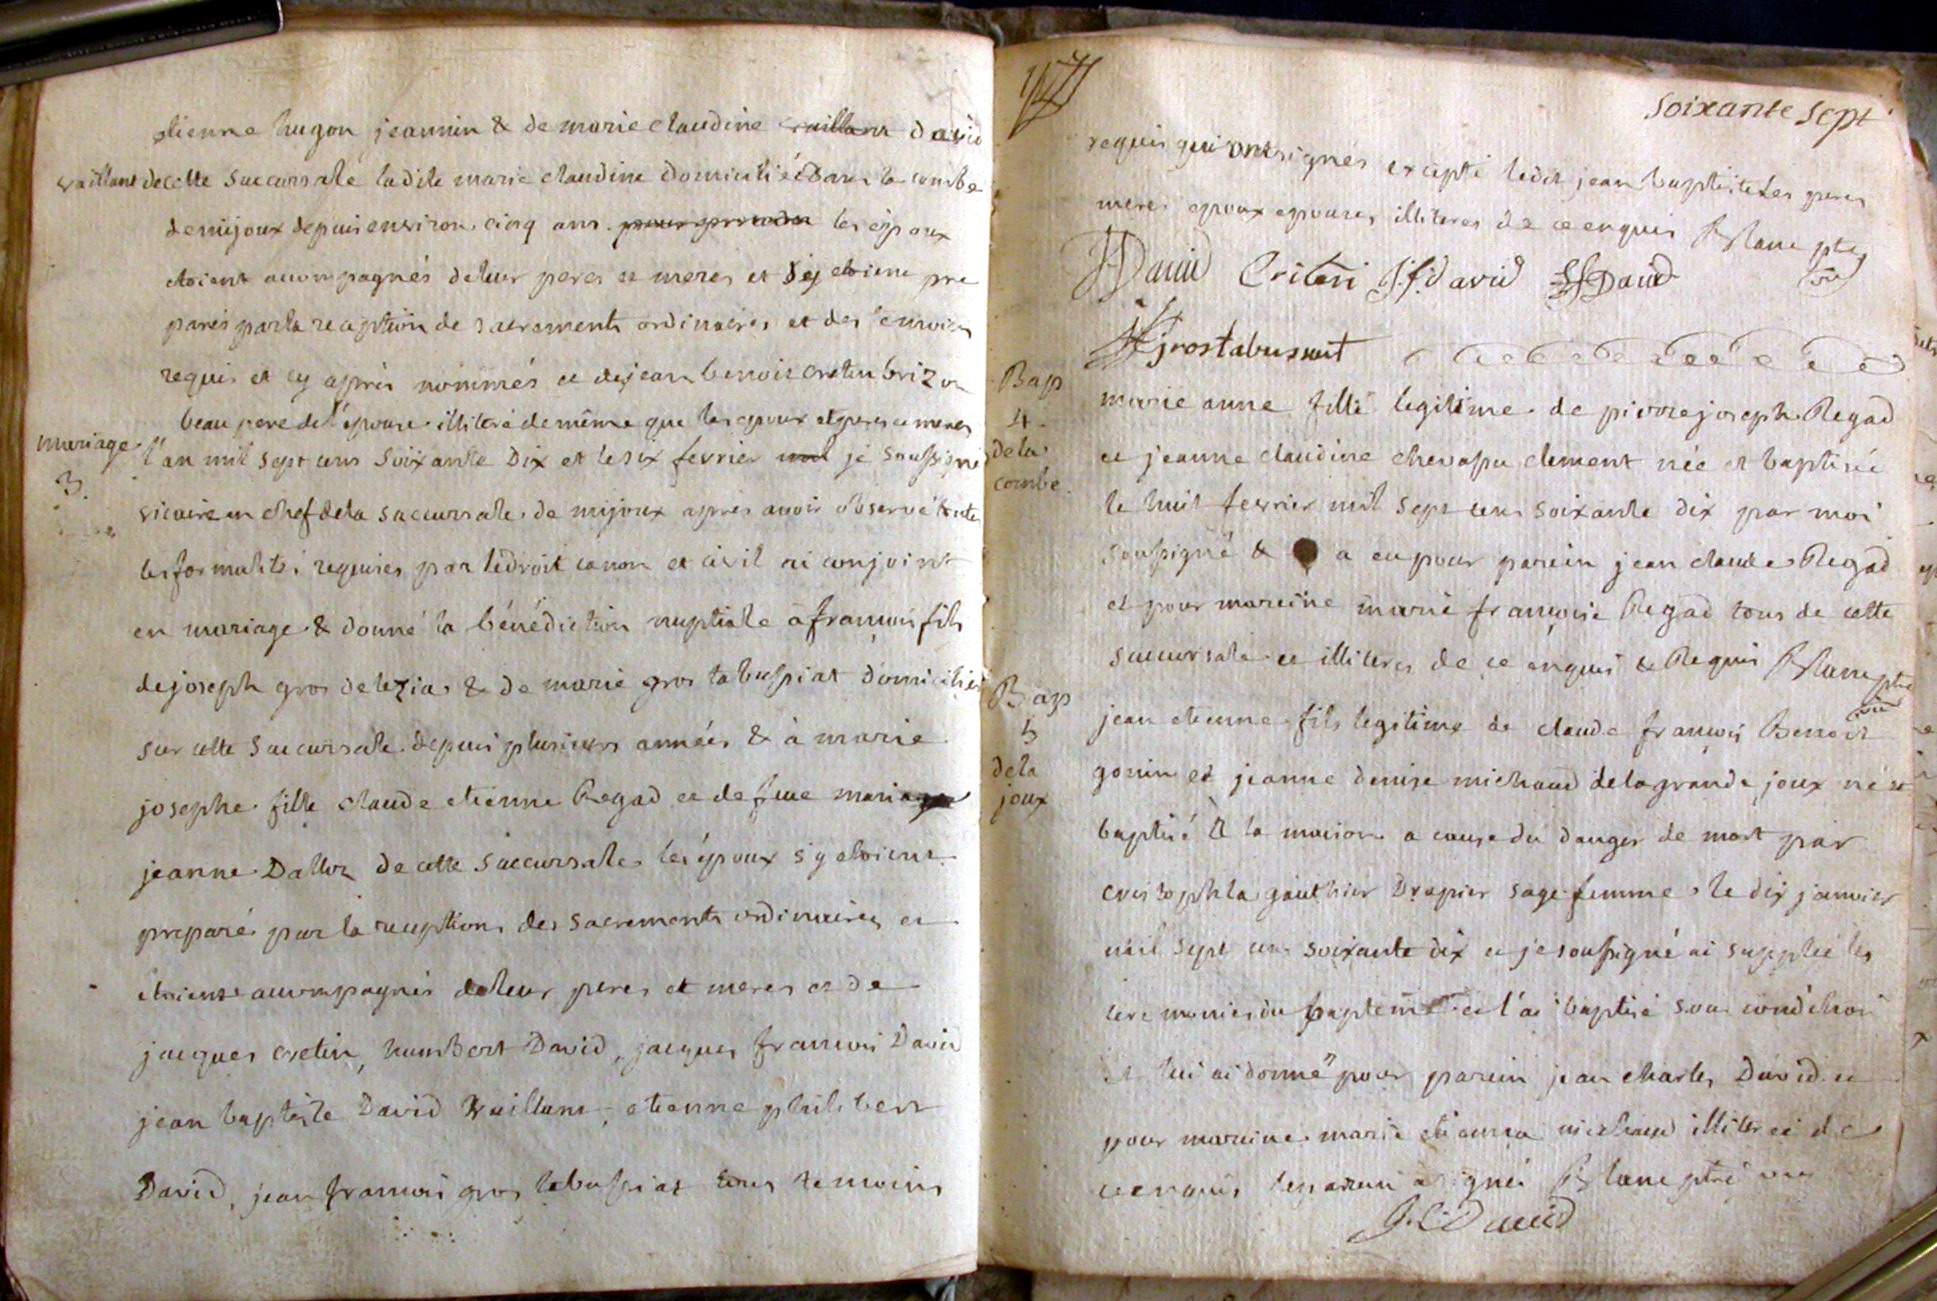 etienne hugon jeannin & de marie claudine vaillant david
vaillant de cette succursale ladite marie claudine domiciliée dans la combe
de mijoux depuis environ cinq ans pour proceder les epoux
etoient accompagnés de leur peres et meres et s'ÿ etoient pre
parés par la reception de sacrements ordinaires et des temoins
requis et cy après nommés et de jean benoit cretin brizon
beau pere de l'épouse illiteré de même que les epoux et peres et meres
mariage
3.
l'an mil sept cens soixante dix et le six fevrier mil je soussigné
vicaire en chef de la succursale de mijoux apres avoir observé toutes
les formalités requises par le droit canon et civil ai conjoint
en mariage & donné la bénédiction nuptiale a francois fils
de joseph gros delezias & de marie gros tabussiat domiciliés
sur cette succursale depuis plusieurs années & à marie
josephe fille claude etienne Regad et de feue marie
jeanne Dalloz de cette succursale les époux s'y etoient
preparé par la reception des sacrements ordinaires et
étoient accompagnés de leur peres et meres et de
jacques cretin, humbert David, jacques francois David
jean baptiste David Vaillant, etienne philibert
David, jean francois gros tabussiat tous temoins
soixante sept
requis qui ont signés excepté ledit jean baptiste les peres
meres epoux epouses illiteres de ce enquis
JDavid Critin J.f.david David
vic
grostabussiat
Bap
4.
de la
combe
marie anne fille legitime de pierre joseph Regad
et jeanne claudine chevassu clement née et baptisée
le huit fevrier mil sept cens soixante dix par moi
soussigné & a eu pour parein jean claude Regad
et pour mareine marie francoise Regad tous de cette
succursale et illiteres de ce enquis & Requis
Bap
5
de la
joux
jean etienne fils legitime de claude francois Benoit
gonin et jeanne denise michaud de la grande joux né et
baptisé à la maison a cause du danger de mort par
cristophla gauthier Drapier sage femme le dix janvier
mil sept cens soixante dix et je soussigné ai supplée les
ceremonies du baptême et l'ai baptisé sous condition
et lui ai donné pour parein jean charles David et
pour mareine marie etienna michaud illiterée de
ce enquis le parein a signé ptre vic
J.C David